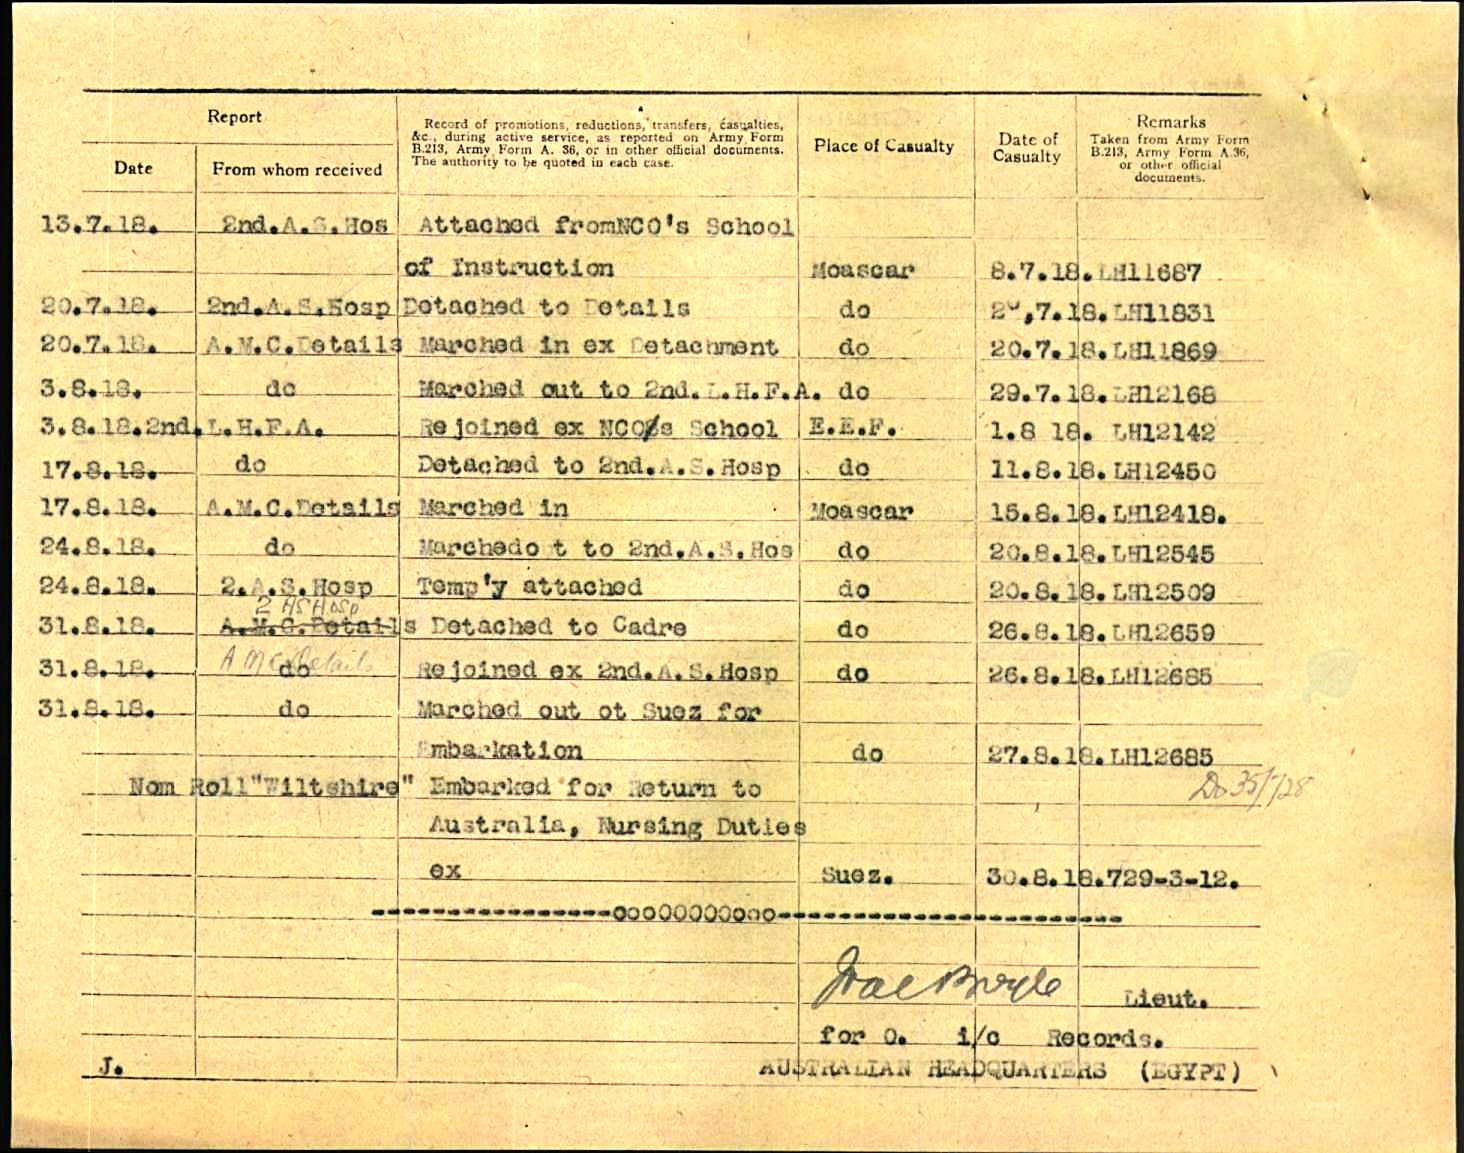 Report
Date
From whom received
Record of promotions, reductions, transfers, casualties,
&c., during active service, as reported on Army Form
B.213, Army Form A. 36, or in other official documents.
The authority to be quoted in each case.
Place of Casualty
Date of
Casualty
Remarks
Taken from Army Form
B.213, Army Form A.36,
or other official
documents.
13.7.18. 2nd.A.S.Hos Attached fromNCO's School
of Instruction Moascar 8.7.18. LH11687
20.7.18. 2nd.A.S.Hosp Detached to Details do 20.7.18. LH11831
20.7.18. A.M.C.Details Marched in ex Detachment do 20.7.18. LH11869
3.8.18. do Marched out to 2nd.L.H.F.A. do 29.7.18. LH12168
3.8.18. 2nd.L.H.F.A. Rejoined ex NCO's School E.E.F. 1.8 18. LH12142
17.8.18. do Detached to 2nd.A.S.Hosp do 11.8.18. LH12450
17.8.18. A.M.C.Details Marched in Moascar 15.8.18. LH12418.
24.8.18. do Marchedo t to 2nd.A.S.Hos do 20.8.18. LH12545
24.8.18. 2.A.S.Hosp Temp'y attached do 20.8.18. LH12509
2 AS Hosp
31.8.18. A.M.C.Details Detached to Cadre do 26.8.18. LH12659
A M C Details
31.8.18. do Rejoined ex 2nd.A.S.Hosp do 26.8.18. LH12685
31.8.18. do Marched out ot Suez for
Embarkation do 27.8.18. LH12685
Nom Roll"Wiltshire" Embarked for Return to Do 35/128
Australia, Nursing Duties
ex Suez. 30.8.18. 729-3-12.
-----------------ooo00000ooo------------------------
Lieut.
for O. i/c Records.
J. AUSTRALIAN HEADQUARTERS (EGYPT)